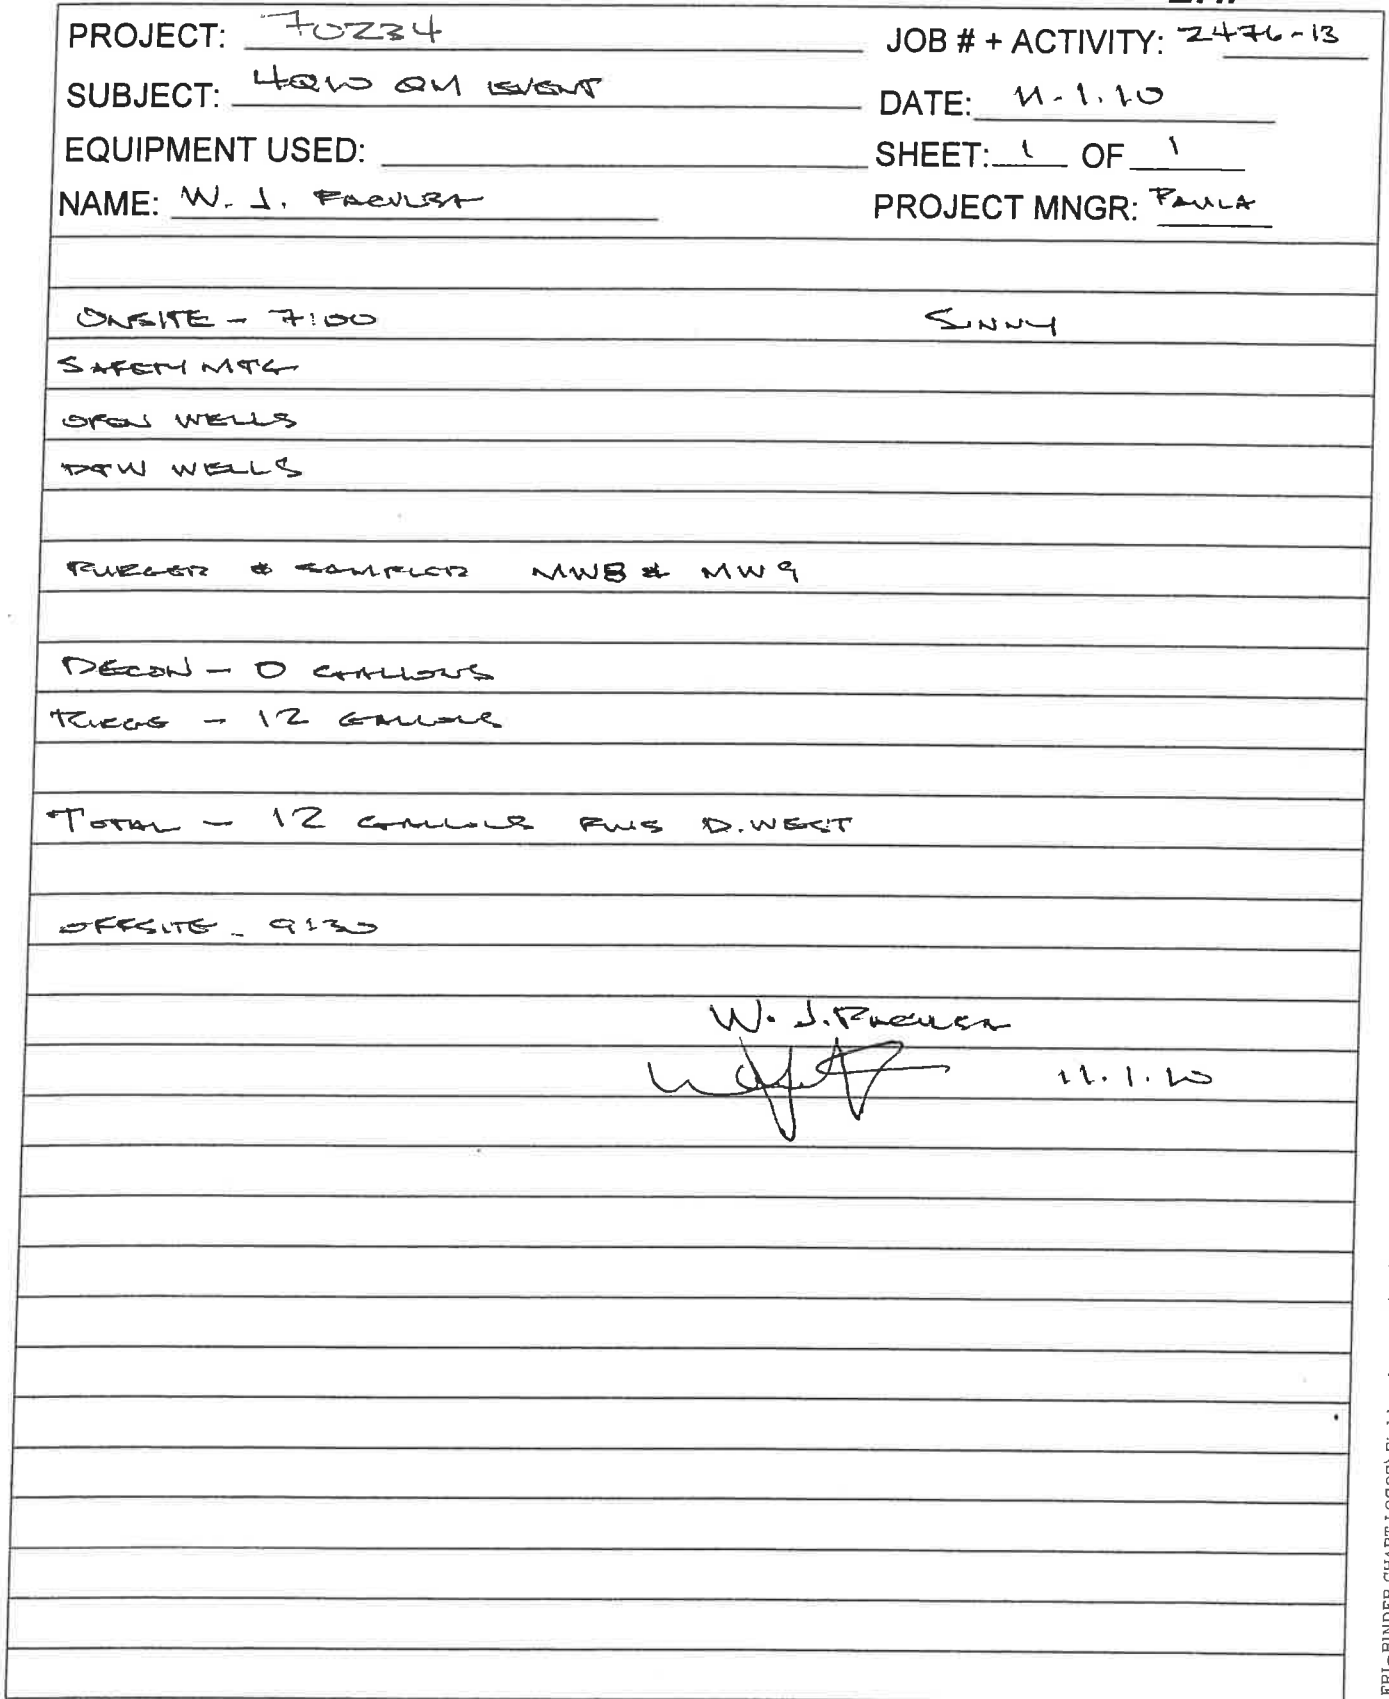 PROJECT: 70234 JOB # + ACTIVITY: 2476-13
SUBJECT: 4Q10 QM EVENT DATE: 11.1.10
EQUIPMENT USED: SHEET: 1 OF 1
NAME: W. J. PROJECT MNGR: PAULA
ONSITE - 7:00 SUNNY
SAFETY MTG
OPEN WELLS
DTW WELLS
PURGED & SAMPLED MW8 & MW9
DECON - 0 GALLONS
PURGE - 12 GALLONS
TOTAL - 12 GALLONS D. WEST
OFFSITE - 9:30
W. J.
11.1.10